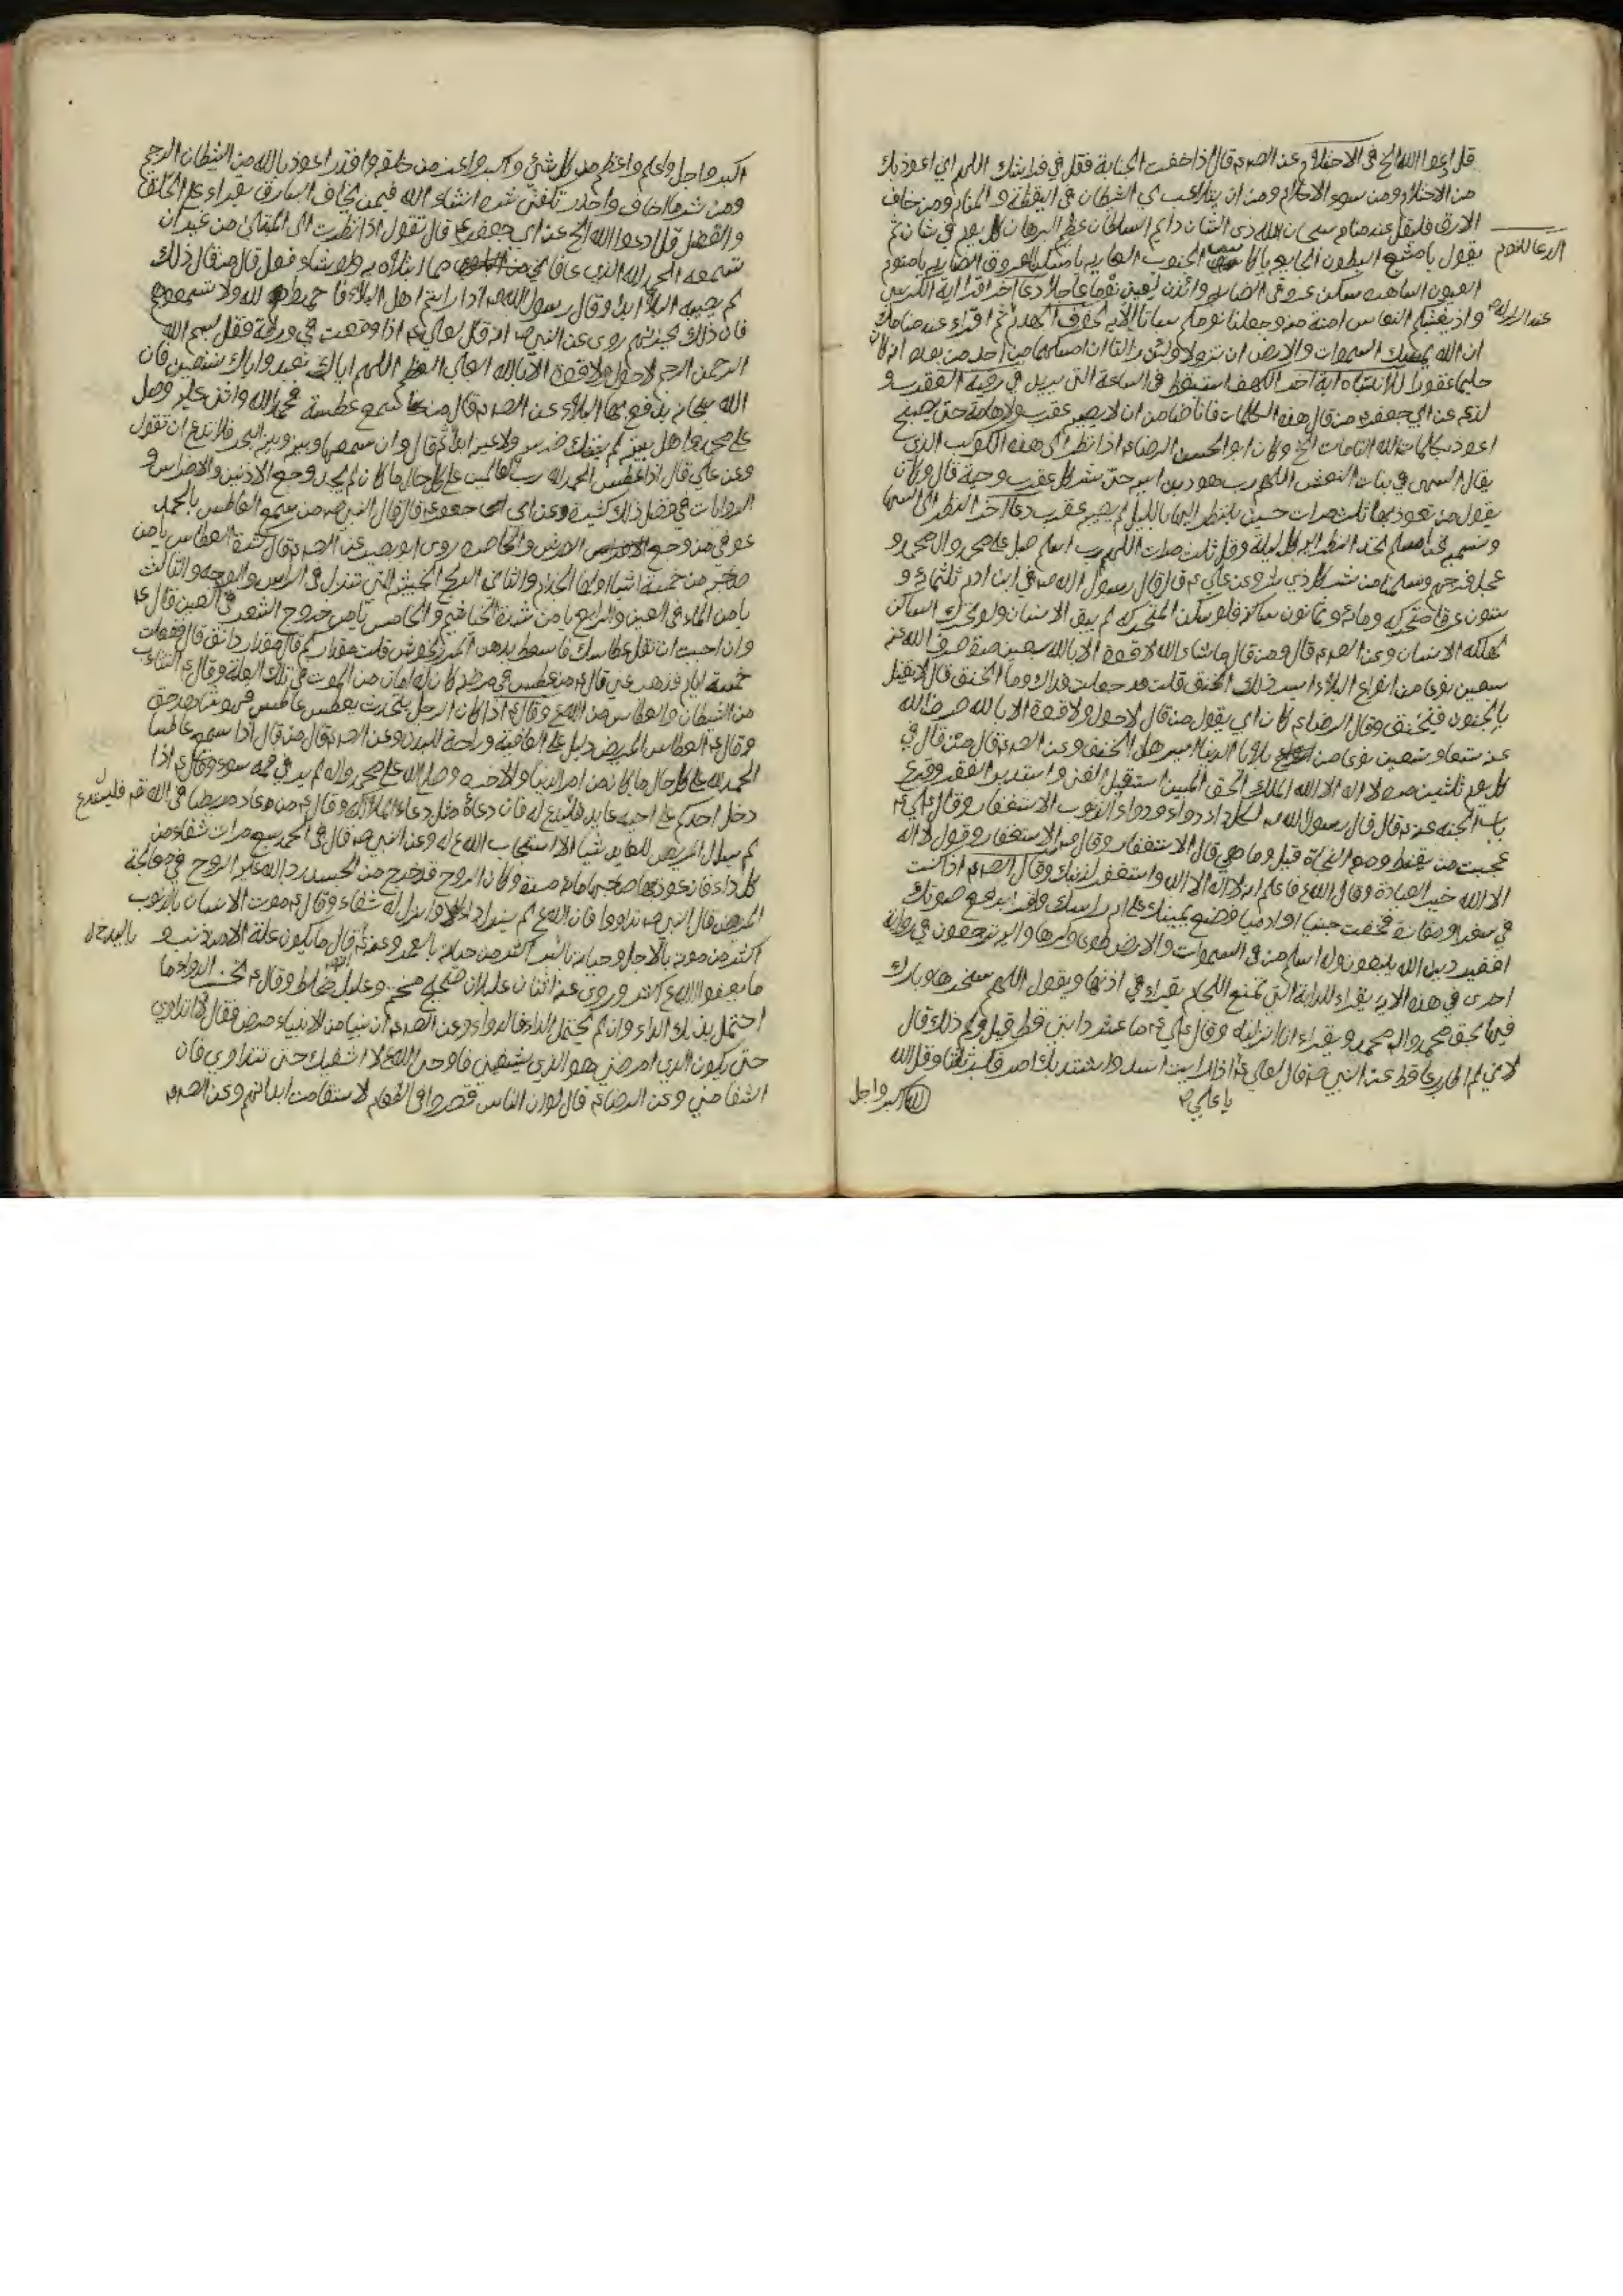 قل ادعوا الله الخ في الاحتلام عن الصم قال اذا خفت الجنابة فقل في فراشك اللهم اني اعوذ بك
من الاحتلام ومن سوء الاحلام ومن ان يتلاعب بي الشيطان في اليقظة والمنام ومن خاف
الارق فليقل عند منامه سبحان الله ذي الشان دائم السلطان عظيم البرهان كل يوم في شان ثم
الدعا للنوم
يقول يا مشبع البطون الجايعه يا كاسي الجنوب العاريه يا مسكن العروق الضاربه يا منوم
العيون الساهره سكن عروقي الضاربه وائذن لعيني نوما عاجلا دعا آخر اقرا آية الكرسي
واذ يغشيكم النعاس امنة منه وجعلنا نومكم سباتا
ان الله يمسك السموات والارض ان تزولا ولئن زالتا ان امسكهما من احد من بعده انه كان
حليما غفورا للانتباه آية آخر الكهف استيقظ في الساعة التي يريد في رقية العقرب و
عن ابي جعفر من قال هذه الكلمات فانا ضامن ان لا يصيبه عقرب ولا هامة حتى يصبح
اعوذ بكلمات الله التامات الخ وكان ابو الحسن الرضاء اذا نظر الى هذه الكوكب الذي
يقال السهى في بنات النعش اللهم رب هود بن اسيه شر كل عقرب وحية قال وكان
يقول من تعوذ بها ثلث مرات حين ينظر اليها بالليل لم يصبه عقرب دعا آخر انظر الى السها
انظر اليه كل ليلة وقل ثلث مرات اللهم رب اسلم صل على محمد وال محمد و
عجل فرجهم وسلمنا من شر كل ذي شر وعن علي قال قال رسول الله ص في ابن ادم ثلثمائة و
ستون عرقا متحركه ومائة وثمانون ساكنه فلو سكن المتحركه لم يبق الانسان ولو تحرك الساكن
لهلك الانسان وعن الصم قال ومن قال ما شاء الله لا قوة الا بالله سبعين مرة صرف الله عنه
سبعين نوعا من انواع البلاء ايسر ذلك الخنق قلت جعلت فداك وما الخنق قال لا يقتل
بالجنون فيخنق وقال الرضاء كان ابي يقول من قال لا حول ولا قوة الا بالله صرف الله
عنه تسعا وتسعين نوعا من بلايا الدنيا ايسرها الخنق وعن الصم قال من قال في
كل يوم ثلثين مرة لا اله الا الله الملك الحق المبين استقبل الغنى واستدبر الفقر وقرع
باب الجنه قال قال رسول الله لكل داء دواء ودواء الذنوب الاستغفار وقال علي
عجبت من يقنط ومعه النجاة قيل وما هي قال الاستغفار وقال ص الاستغفار وقول لا اله
الا الله خير العبادة وقال الله فاعلم انه لا اله الا الله واستغفر لذنبك وقال الصم اذا كنت
في سفر او مفازة فخفت جنيا او ادميا فضع يمينك على ام راسك واقرا برفع صوتك
افغير دين الله يبغون وله اسلم من في السموات والارض طوعا وكرها واليه ترجعون في رواية
اخرى في هذه الايه يقراء للدابة التي تمنع اللجام يقراء في اذنها ويقول اللهم سخرها وبارك
فيها بحق محمد وال محمد ويقراء انا انزلناه وقال علي ما عثر دابتي قط قيل ولم ذلك قال
قط عن النبي ص قال لعلي اذا رايت اسدا واشتد بك امر فكبر ثلثا وقل الله
يا علي
اكبر واجل
اكبر واجل واعلم واعظم من كل شيء واكبر واعز من خلقه واقدر اعوذ بالله من الشيطان الرجيم
ومن شر ما اخاف واحذر تكفى شره انشاء الله فيمن يخاف السارق يقراء على الحلق
والقفل قل ادعوا الله الخ عن ابي جعفر قال تقول اذا نظرت الى المبتلى من غير ان
تسمعه الحمد لله الذي عافاني مما ابتلاه به ولو شاء فعل قال من قال ذلك
لم يصبه البلاء ابدا وقال رسول الله ص اذا رايتم اهل البلاء فاحمدوا لله ولا تسمعوهم
فان ذلك يحزنهم روى عن النبي ص انه قال لعلي اذا وقعت في ورطة فقل بسم الله
الرحمن الرحيم لا حول ولا قوة الا بالله العلي العظيم اللهم اياك نعبد واياك نستعين فان
الله سبحانه يدفع بها البلاء عن الصم قال من سمع عطسة فحمد الله واثنى عليه وصل
على محمد واهل بيته لم يشتك ضرسه ولا عينه ابدا قال وان سمعها وبينه وبين البحر فلا تدع ان تقول
وعن علي قال اذا عطس الحمد لله رب العالمين على كل حال ما كان لم يجد وجع الاذنين والاضراس و
الروايات في فضل ذلك كثيرة وعن ابي جعفر قال قال النبي ص من سمع العاطس بالحمد
عوفي من وجع الضرس والخاصره روى ابو بصير عن الصم قال كثرة العطاس يامن
صاحبه من خمسة اشياء اولها الجذام والثاني الريح الخبيثه التي تنزل في الراس والوجه والثالث
يامن الماء في العين والرابع يامن شدة الخياشيم والخامس يامن خروج الشعر في العين قال
وان احببت ان تقل عطاسك فاسعط بدهن المرزنجوش قلت مقدار كم قال مقدار دانق قال ففعلت
خمسة ايام فذهب عني قال من عطس في مرضه كان له امان من الموت في تلك العلة وقال التثاوب
من الشيطان والعطاس من الله وقال اذا كان الرجل يتحدث بعطس عاطس فهو شاهد حق
وقال العطاس للمريض دليل على العافية وراحة للبدن وعن الصم قال من قال اذا سمع عاطسا
الحمد لله على كل حال ما كان من امر الدنيا والاخره وصل الله على محمد واله لم ير في فمه سوء وقال اذا
دخل احدكم على اخيه عايدا فليدع له فان دعاءه مثل دعاء الملائكة وقال من عاد مريضا في الله
لم يسال المريض للعايد شيا الا استجاب الله له وعن النبي ص قال في الحمد سبع مرات شفاء من
كل داء فان عوذ بها صاحبها مائة مرة وكان الروح قد خرج من الجسد رد الله عليه الروح في معالجة
المريض قال النبي ص تداووا فان الله لم ينزل داء الا وانزل له شفاء وقال موت الانسان بالذنوب
اكثر من موته بالاجل وحياته بالبر اكثر من حياته بالعمر وعنه قال ما يكون علة الا من ذنب و
ما يعفو الله اكثر وروى عنه اثنان عليلان صحيح محتم وعليل مخلط وقال تجنب الدواء ما
احتمل بدنك الداء وان لم يحتمل الداء فالدواء وعن الصم ان نبيا من الانبياء مرض فقال لا اتداوى
حتى يكون الذي امرضني هو الذي يشفيني فاوحى الله لا اشفيك حتى تتداوى فان
الشفا مني وعن الرضاء قال لو ان الناس قصروا في الطعام لاستقامت ابدانهم وعن الصم